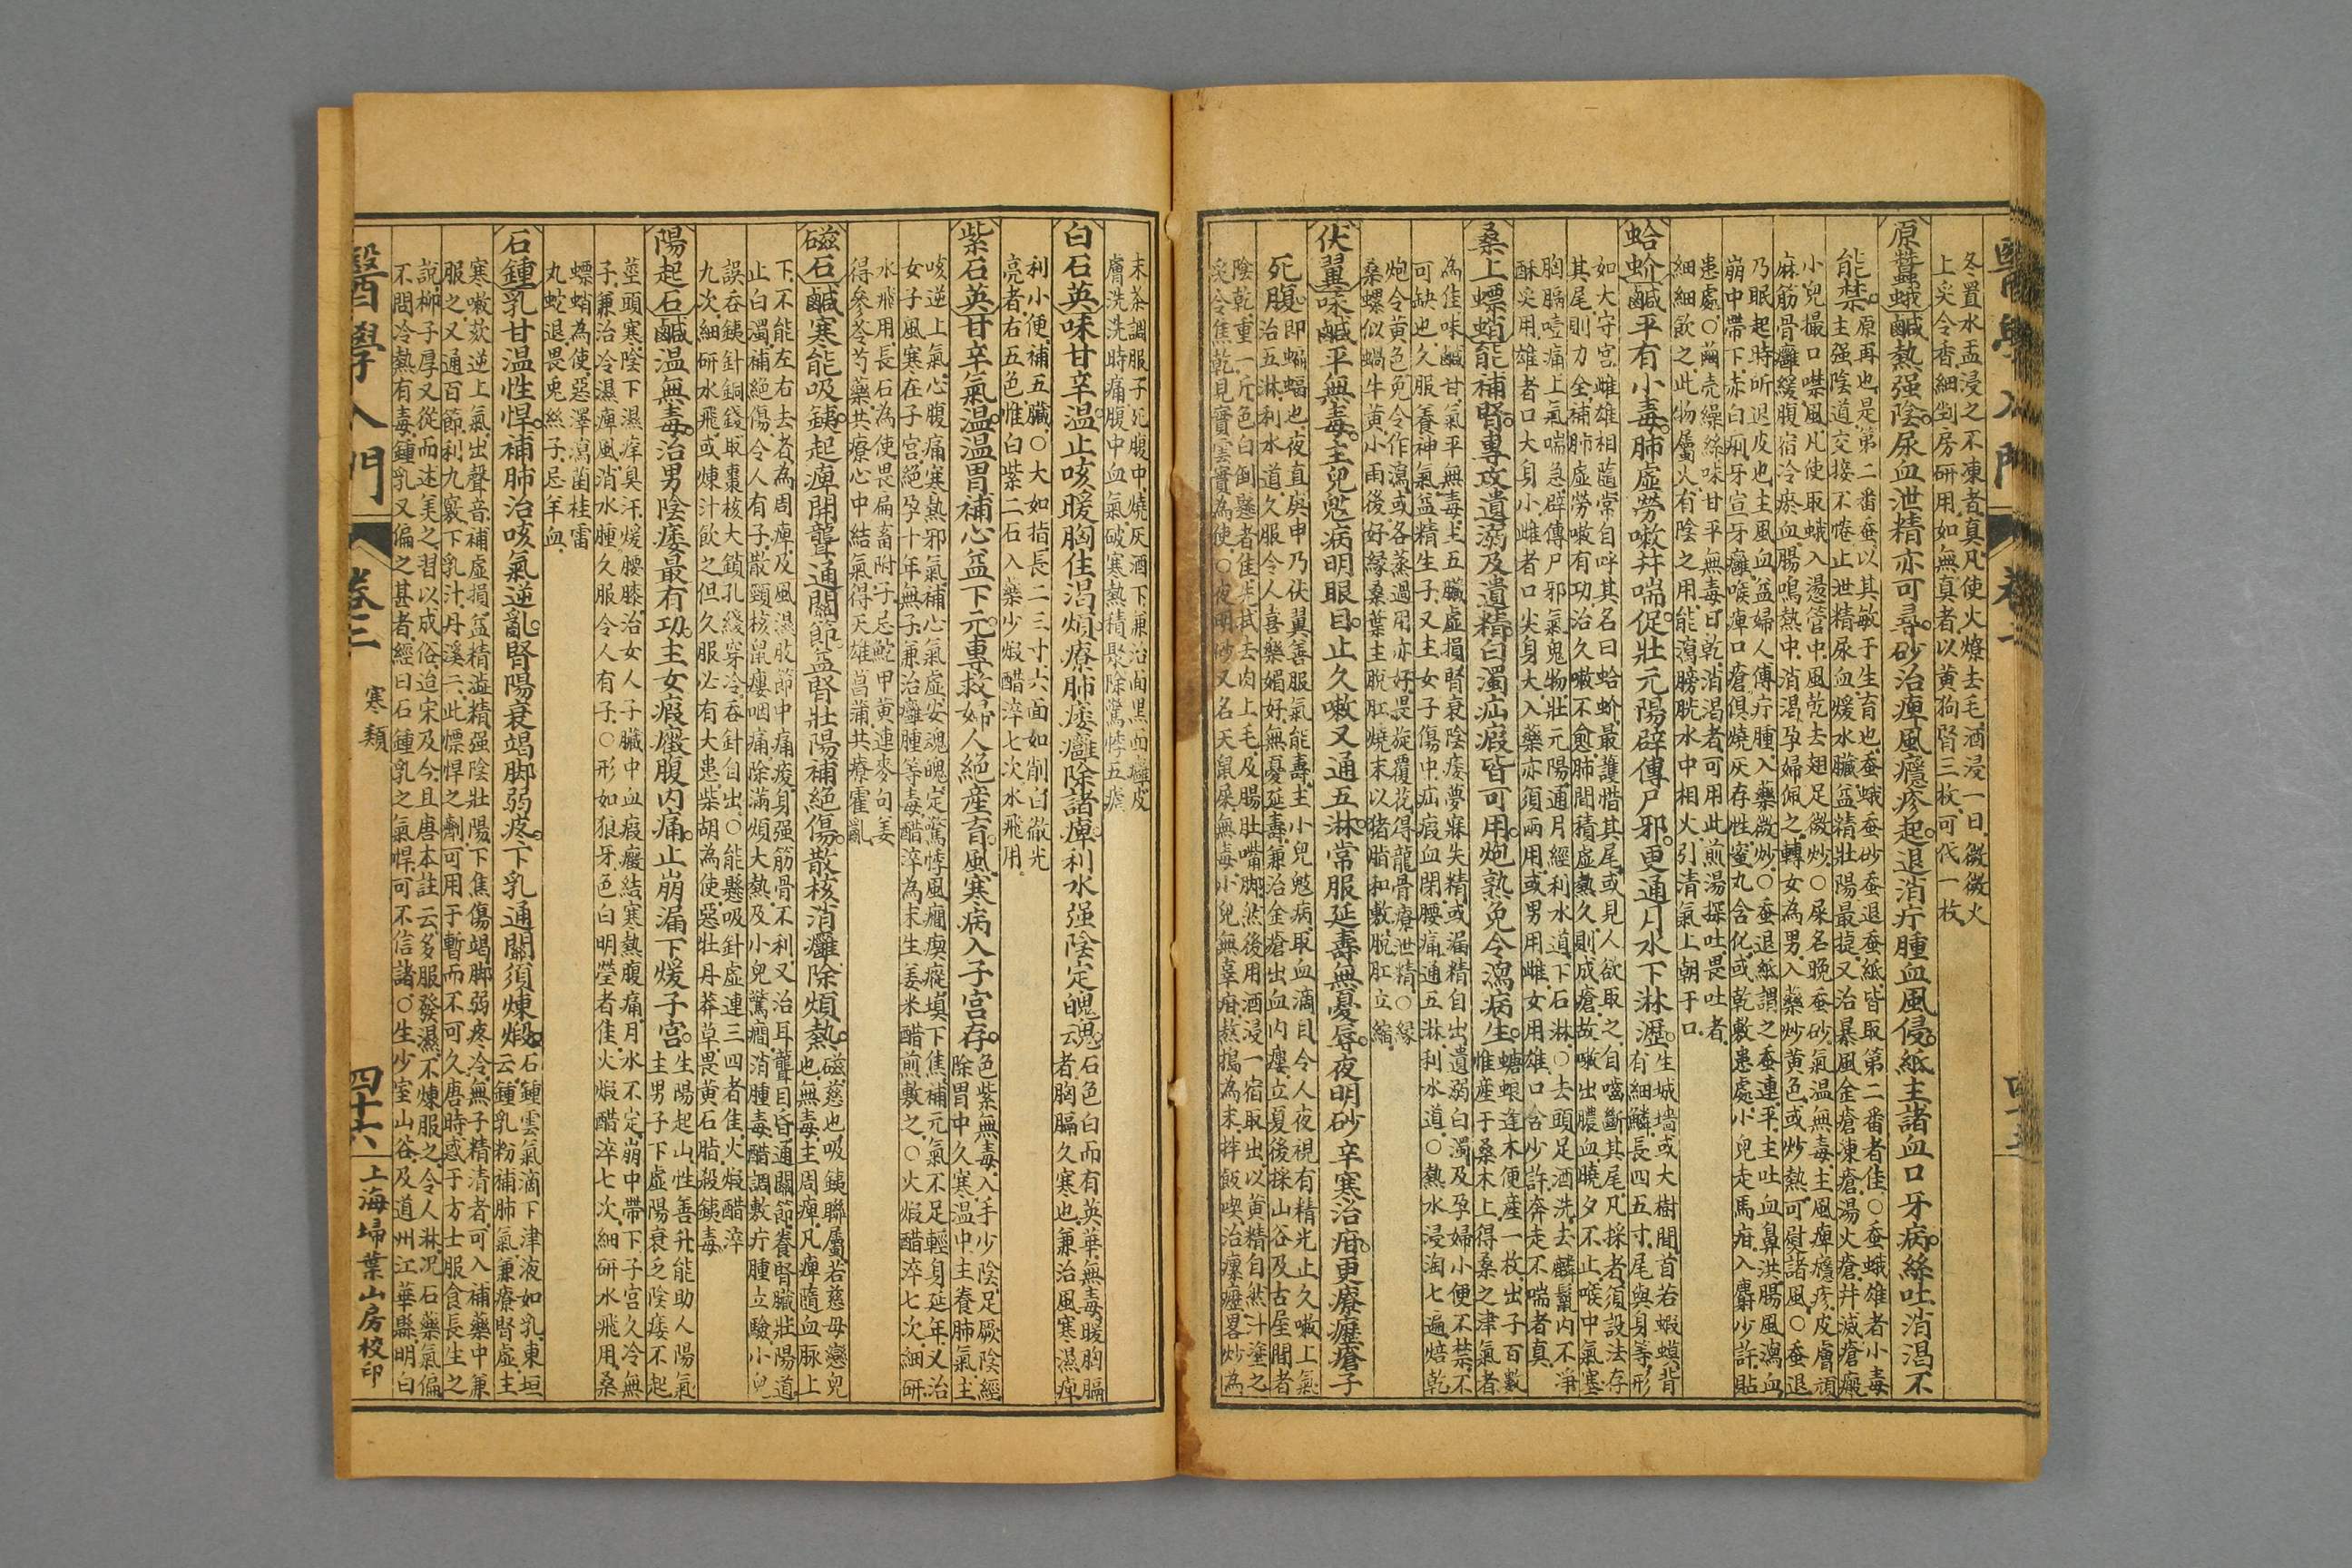 冬置水盂浸之不凍者真凡使火燎去毛酒浸一日微微火
上炙令香細剉房研用如無真者以黃狗腎三枚可代一枚
原蠶蛾鹹熱强陰尿血泄精亦可尋砂治痺風癮疹起退消疔腫血風侵紙主諸血口牙病絲吐消渴不
能禁原再也是第二番蚕以其敏于生育也蚕蛾蚕砂蚕退蚕紙皆取第二番者佳○蚕蛾雄者小毒
主强陰道交接不倦止泄精尿血煖水臟益精壯陽最㨗又治暴風金瘡凍瘡湯火瘡并滅瘡瘢
小兒撮口噤風凡使取蛾入慂管中風乾去翅足微炒○屎名晚蚕砂氣温無毒主風痺癮疹皮膚頑
麻筋骨癱緩腹宿冷瘀血腸鳴熱中消渴孕婦佩之轉女為男入藥炒黃色或炒熱可熨諸風○蚕退
乃眠起時所退皮也主風血益婦人傅疔腫入藥微炒○蚕退紙謂之蚕連平主吐血鼻洪腸風瀉血
崩中帶下赤白痢牙宣牙癰喉痺口瘡俱燒灰存性蜜丸含化或乾敷患處小兒走馬疳入麝少許貼
患處○繭壳繰絲味甘平無毒日乾消渴者可用此煎湯探吐畏吐者
細細飲之此物屬火有陰之用能瀉膀胱水中相火引清氣上朝于口
蛤蚧鹹平有小毒肺虛勞嗽并喘促壯元陽辟傳尸邪更通月水下淋瀝生城墻或大樹間首若蝦蟆背
有細鱗長四五寸尾與身等形
如大守宮雌雄相隨常自呼其名曰蛤蚧最護惜其尾或見人欲取之自嚙斷其尾凡採者須設法存
其尾則力全補肺虛勞嗽有功治久嗽不愈肺間積虛熱久則成瘡故嗽出膿血曉夕不止喉中氣塞
胸膈噎痛上氣喘急辟傳尸邪氣鬼物壯元陽通月經利水道下石淋○去頭足酒洗去鱗鬣内不淨
酥炙用雄者口大身小雌者口尖身大入藥亦須兩用或男用雌女用雄口含少許奔走不喘者真
桑上螵蛸能補腎專攻遺溺及遺精白濁疝瘕皆可用炮熟免令瀉病生螗蜋逢木便產一枚出子百數
惟産于桑木上得桑之津氣者
為佳味鹹甘氣平無毒主五臟虛損腎衰陰痿夢寐失精或漏精自出遺溺白濁及孕婦小便不禁不
可缺也久服養神氣益精生子又主女子傷中疝瘕血閉腰痛通五淋利水道○熱水浸淘七遍焙乾
炮令黃色免令作瀉或各蒸過用亦好畏旋覆花得龍骨療泄精○緣
桑螺似蝸牛黃小雨後好緣桑葉主脫肛燒末以猪脂和敷脫肛立縮
伏翼味鹹平無毒主兒鬾病明眼目止久嗽又通五淋常服延壽無憂辱夜明砂辛寒治疳更療瘰瘡子
死腹即蝙蝠也夜直庚申乃伏翼善服氣能壽主小兒鬾病取血滴目令人夜視有精光止久嗽上氣
治五淋利水道久服令人喜樂媚好無憂延壽兼治金瘡出血内瘻立夏後採山谷及古屋間者
陰乾重一斤色白倒懸者佳先拭去肉上毛及腸肚嘴脚然後用酒浸一宿取出以黃精自然汁塗之
炙令焦乾見寶雲實為使○夜明砂又名天鼠屎無毒小兒無辜疳熬搗為末拌飯喫治瘰癧畧炒為
末茶調服子死腹中燒灰酒下兼治面黑面皯皮
膚洗洗時痛腹中血氣破寒熱積聚除驚悸五瘧
白石英味甘辛温止咳暖胸住渴煩療肺痿癰除諸痺利水强陰定魄魂石色白而有英華無毒暖胸膈
云者胸膈久寒也兼治風寒濕痺
利小便補五臟○大如指長二三寸六面如削白澈光
亮者右五色惟白紫二石入藥少煅醋淬七次水飛用
紫石英甘辛氣温温胃補心益下元專救婦人絕産育風寒病入子宫存色紫無毒入手少陰足厥陰經
除胃中久寒温中主養肺氣主
咳逆上氣心腹痛寒熱邪氣補心氣虛安魂魄定驚悸風癇瘈瘲塡下焦補元氣不足輕身延年又治
女子風寒在子宫絕孕十年無子兼治癰腫等毒醋淬為末生姜米醋煎敷之○火煅醋淬七次細研
水飛用長石為使畏扁畜附子忌鮀甲黃連麥句姜
得參苓芍藥共療心中結氣得天雄菖蒲共療霍亂
磁石鹹寒能吸鐵起痺開聾通關節益腎壯陽補絕傷散核消癰除煩熱磁慈也吸鐵聯屬若慈母戀兒
也無毒主周痺凡痺隨血脉上
下不能左右去者為周痺及風濕肢節中痛痠身强筋骨不利又治耳聾目昏通關節養腎臟壯陽道
止白濁補絕傷令人有子散頸核鼠瘻咽痛除滿煩大熱及小兒驚癇消腫毒醋調敷疔腫立驗小兒
誤吞鐵針銅錢取棗核大鎖孔綫穿冷吞針自出○能懸吸針虛連三四者佳火煅醋淬
九次細研水飛或煉汁飲之但久服必有大患柴胡為使惡牡丹莽草畏黃石脂殺鐵毒
陽起石鹹温無毒治男陰痿最有功主女瘕癥腹内痛止崩漏下煖子宫生陽起山性善升能助人陽氣
主男子下虛陽衰乏陰痿不起
莖頭寒陰下濕痒臭汗煖腰膝治女人子臟中血瘕癥結寒熱腹痛月水不定崩中帶下子宫久冷無
子兼治冷濕痺風消水腫久服令人有子○形如狼牙色白明瑩者佳火煅醋淬七次細研水飛用桑
螵蛸為使惡澤瀉菌桂雷
丸蛇退畏兎絲子忌羊血
石鍾乳甘温性悍補肺治咳氣逆亂腎陽衰竭脚弱疼下乳通關須煉煅石鍾雲氣滴下津液如乳東垣
云鍾乳粉補肺氣兼療腎虛主
寒嗽欬逆上氣出聲音補虛損益精滋精强陰壯陽下焦傷竭脚弱疼冷無子精清者可入補藥中兼
服之又通百節利九竅下乳汁丹溪二此慓悍之劑可用于暫而不可久唐時惑于方士服食長生之
說柳子厚又從而述美之習以成俗迨宋及今且唐本註云多服發濕不煉服之令人淋况石藥氣偏
不問冷熱有毒鍾乳又偏之甚者經曰石鍾乳之氣悍可不信諸○生少室山谷及道州江華縣明白
醫學入門 卷三 寒類 四十六 上海埽葉山房校印